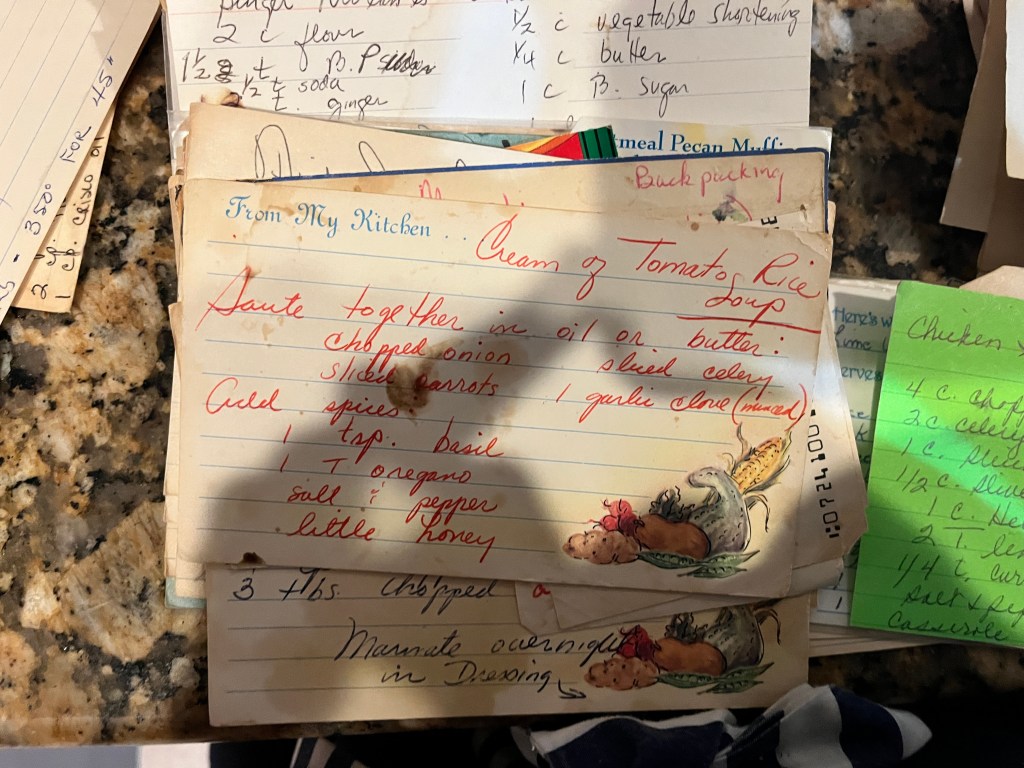 2 c flour
1 1/2 t B. P
1/2 t soda
t. ginger
1/2 c vegetable shortening
1/4 c butter
1 c B. sugar
meal Pecan Muffi
Backpacking
From My Kitchen . . .
Cream of Tomato Rice
Soup
Saute together in oil or butter:
chopped onion sliced celery
sliced carrots 1 garlic clove (minced)
Add spices
1 tsp. basil
1 T oregano
salt & pepper
little honey
3 Tbs. chopped
Marinate overnight
in Dressing
350° FOR 45"
2
1 cp. crisco oil
Here's w
erves
Chicken
4 c. chop
2 c. celery
1 c. slice
1/2 c. slive
1 c. He
2 T. le
1/4 t. cur
Salt & pep
Casserole